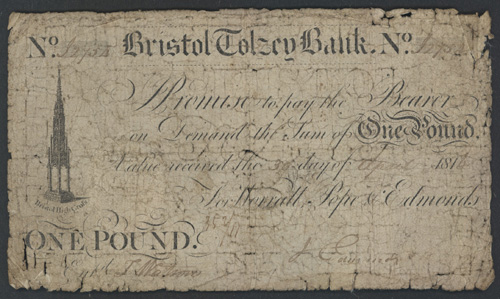 No. Bristol Tolzey Bank. No.
I Promise to pay the Bearer
on Demand the Sum of One Pound.
Value received the day of 181
For Worrall, Pope & Edmonds
ONE POUND.
Ent.d